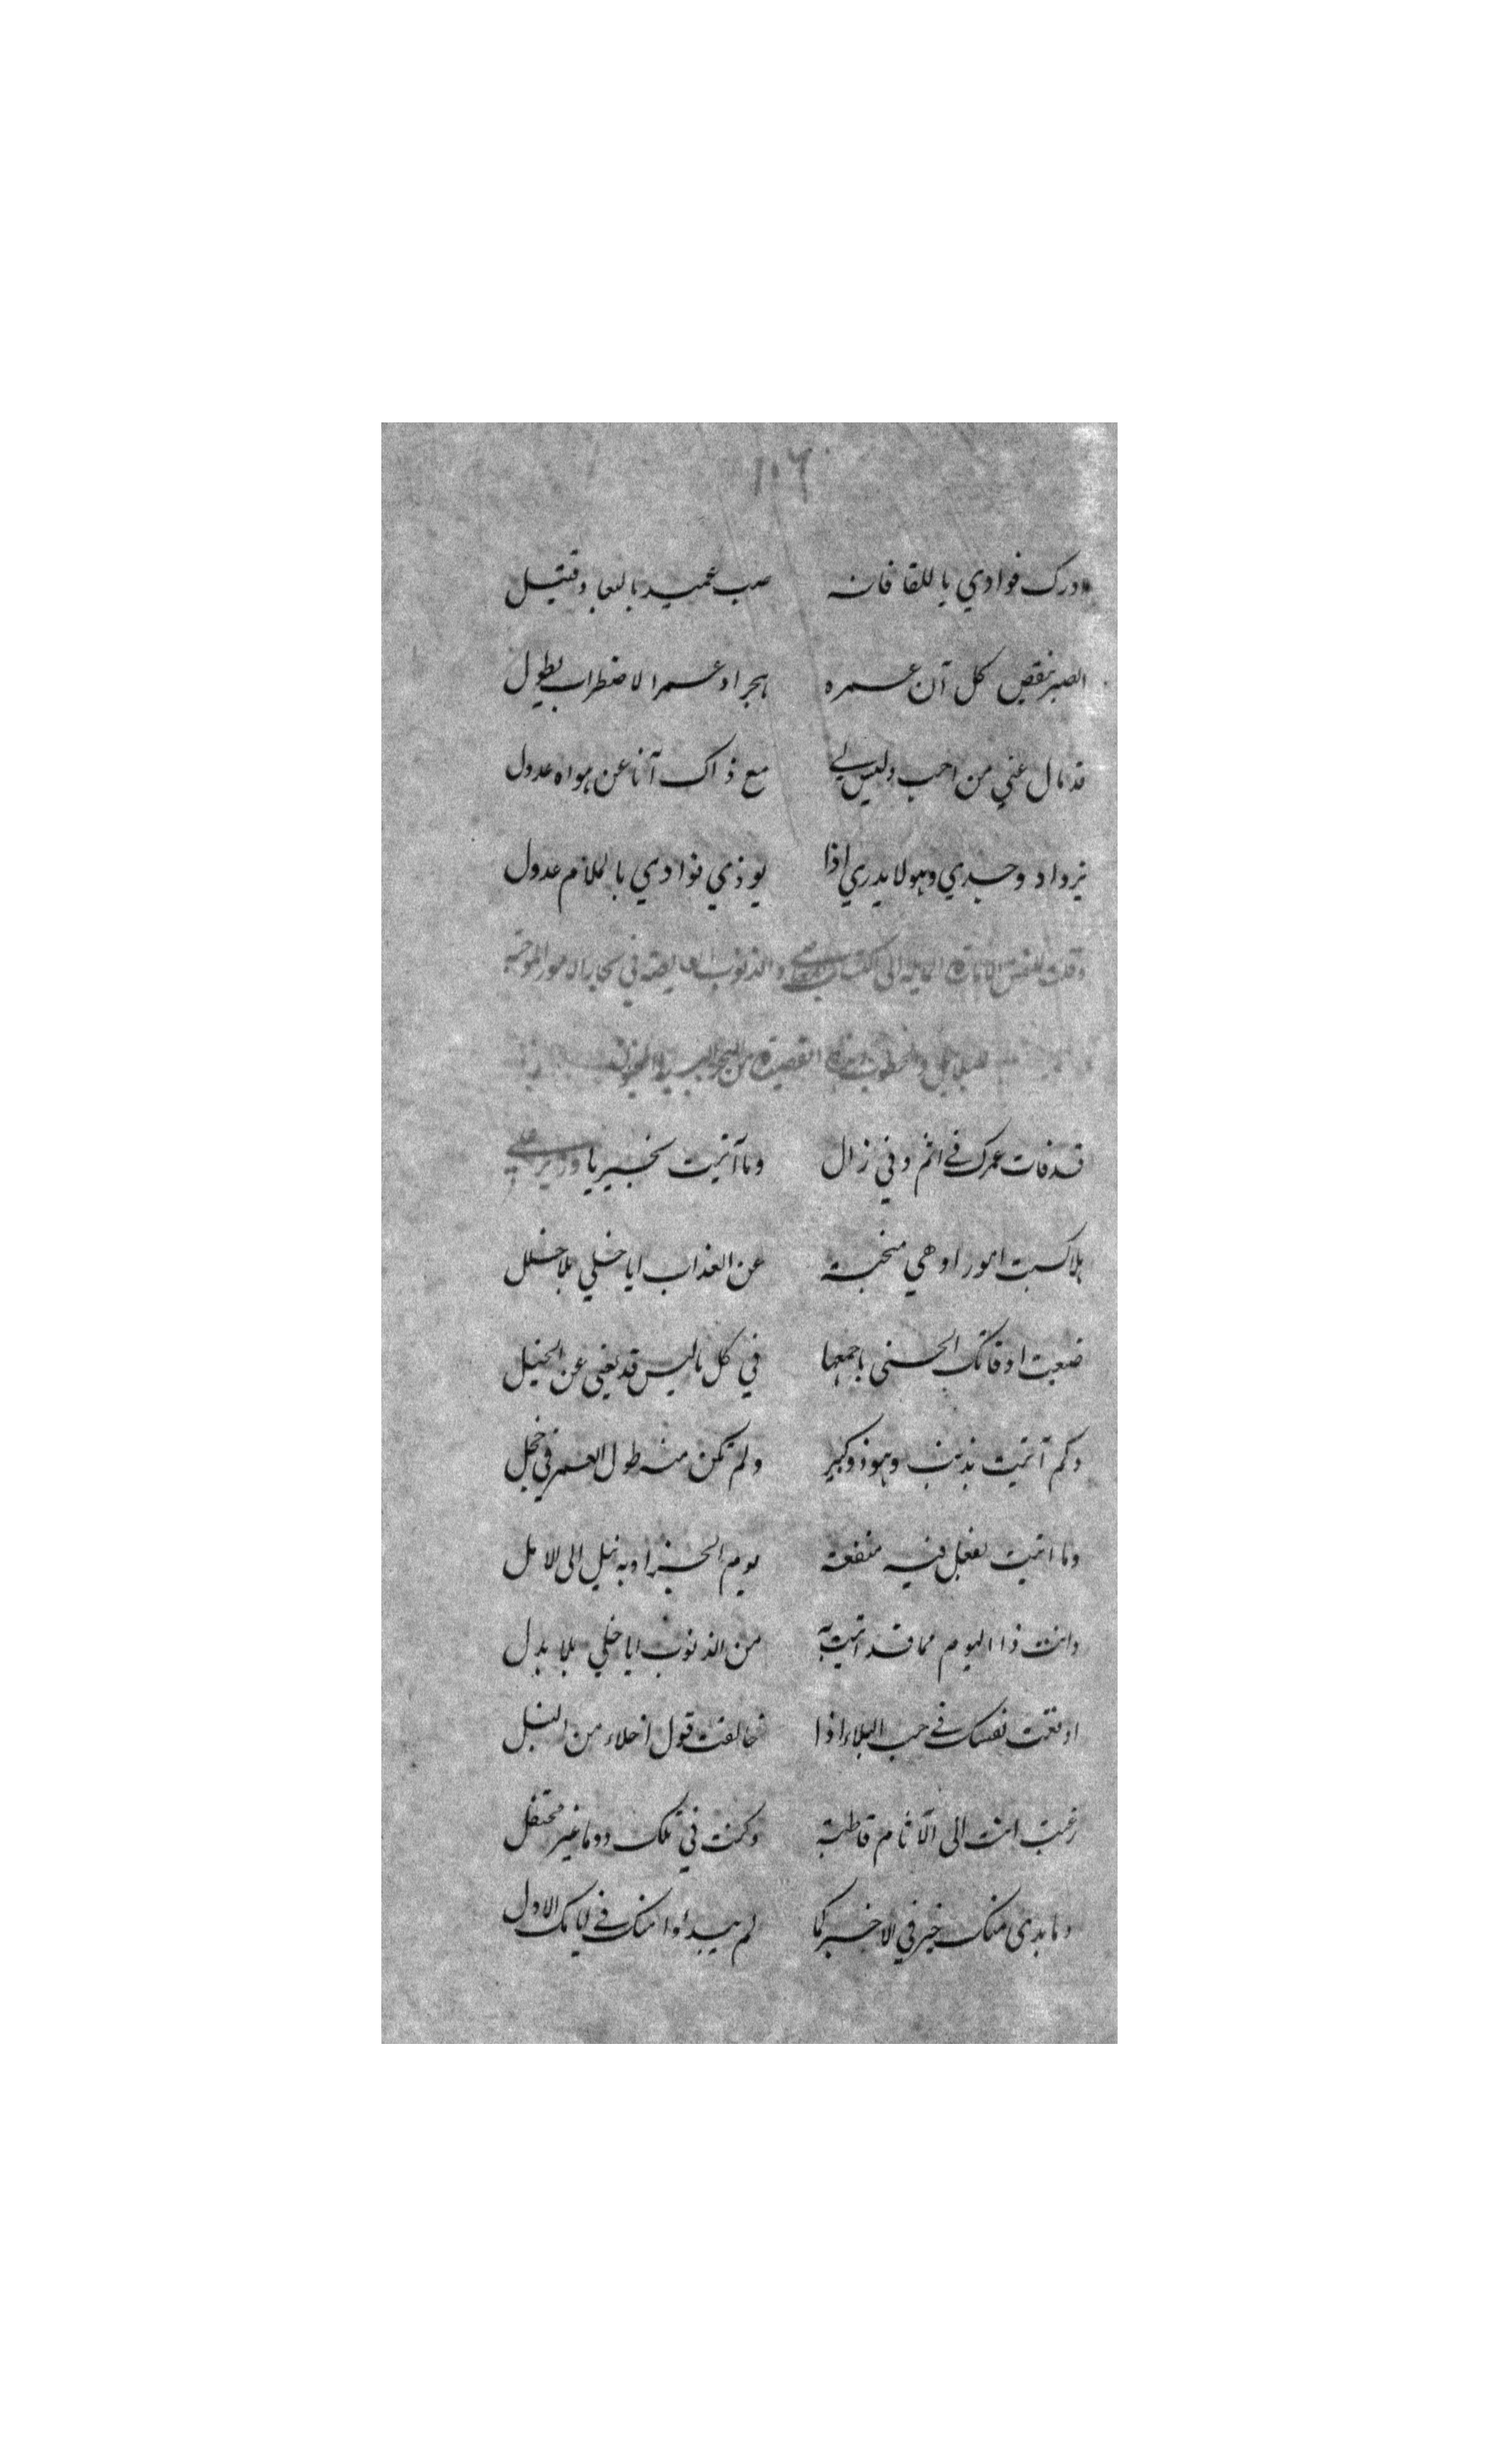 ١٠٦
ودرك فوادي باللقا فانه صب عميد بالبعاد قتيل
الصبر ينقص كل آن عمره هجرا وعمر الاضطراب يطول
قد مال عني من احب وليس لي مع ذاك آنا عن هواه عدول
يزداد وجدي وهو لا يدري اذا يوذي فوادي بالملام عدول
وقلت للنفس الامارة المايلة الى اكتساب المعاصي والذنوب الغايصة في بحار الامور الموجبة
للبلايا والخطوب هذه القصيدة من البحر البسيط
قد فات عمرك في اثم وفي زلل وما آتيت بخير يا وزير علي
هلا كسبت امورا وهي منجية عن العذاب ايا خلي بلا خلل
ضيعت اوقاتك الحسنى باجمعها في كل ما ليس قد يغني عن الحيل
وكم آتيت بذنب وهو ذو كبر ولم تكن منه طول العمر في خجل
وما اتيت بفعل فيه منفعة يوم الجزا وبه نيل الى الامل
وانت ذا اليوم مما قد اتيت به من الذنوب ايا خلي بلا بدل
اوقعت نفسك في جب البلاء اذا خالفت قول اخلاء من النبل
رغبت انت الى الآثام قاطبة وكنت في تلك دوما غير محتفل
وما بدى منك خير في الاخير كما لم يبد منك في ايامك الاول